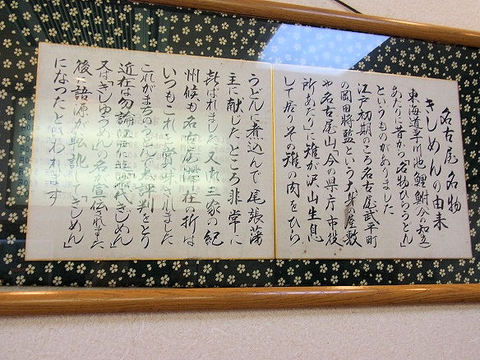 名古屋名物
きしめんの由来
東海道芋川(池鯉鮒今の知立
あたり)に昔から名物ひらうどん
というものがありました
江戸初期のころ名古屋武平町
の岡田将監という大身の屋敷
や名古屋山、今の県庁市役
所あたりに雉が沢山生息
して居り、その雉の肉をひら
うどんに煮込んで尾張藩
主に献じたところ非常に
喜ばれました又、御三家の紀
州候も名古屋滞在の折は
いつもこれを賞味されました
これがまたのうどんで大評判をとり
近在は勿論江戸に
又はきしゅうめんの名で宣伝されました
後に語源が転訛して「きしめん」
になったと伝われます